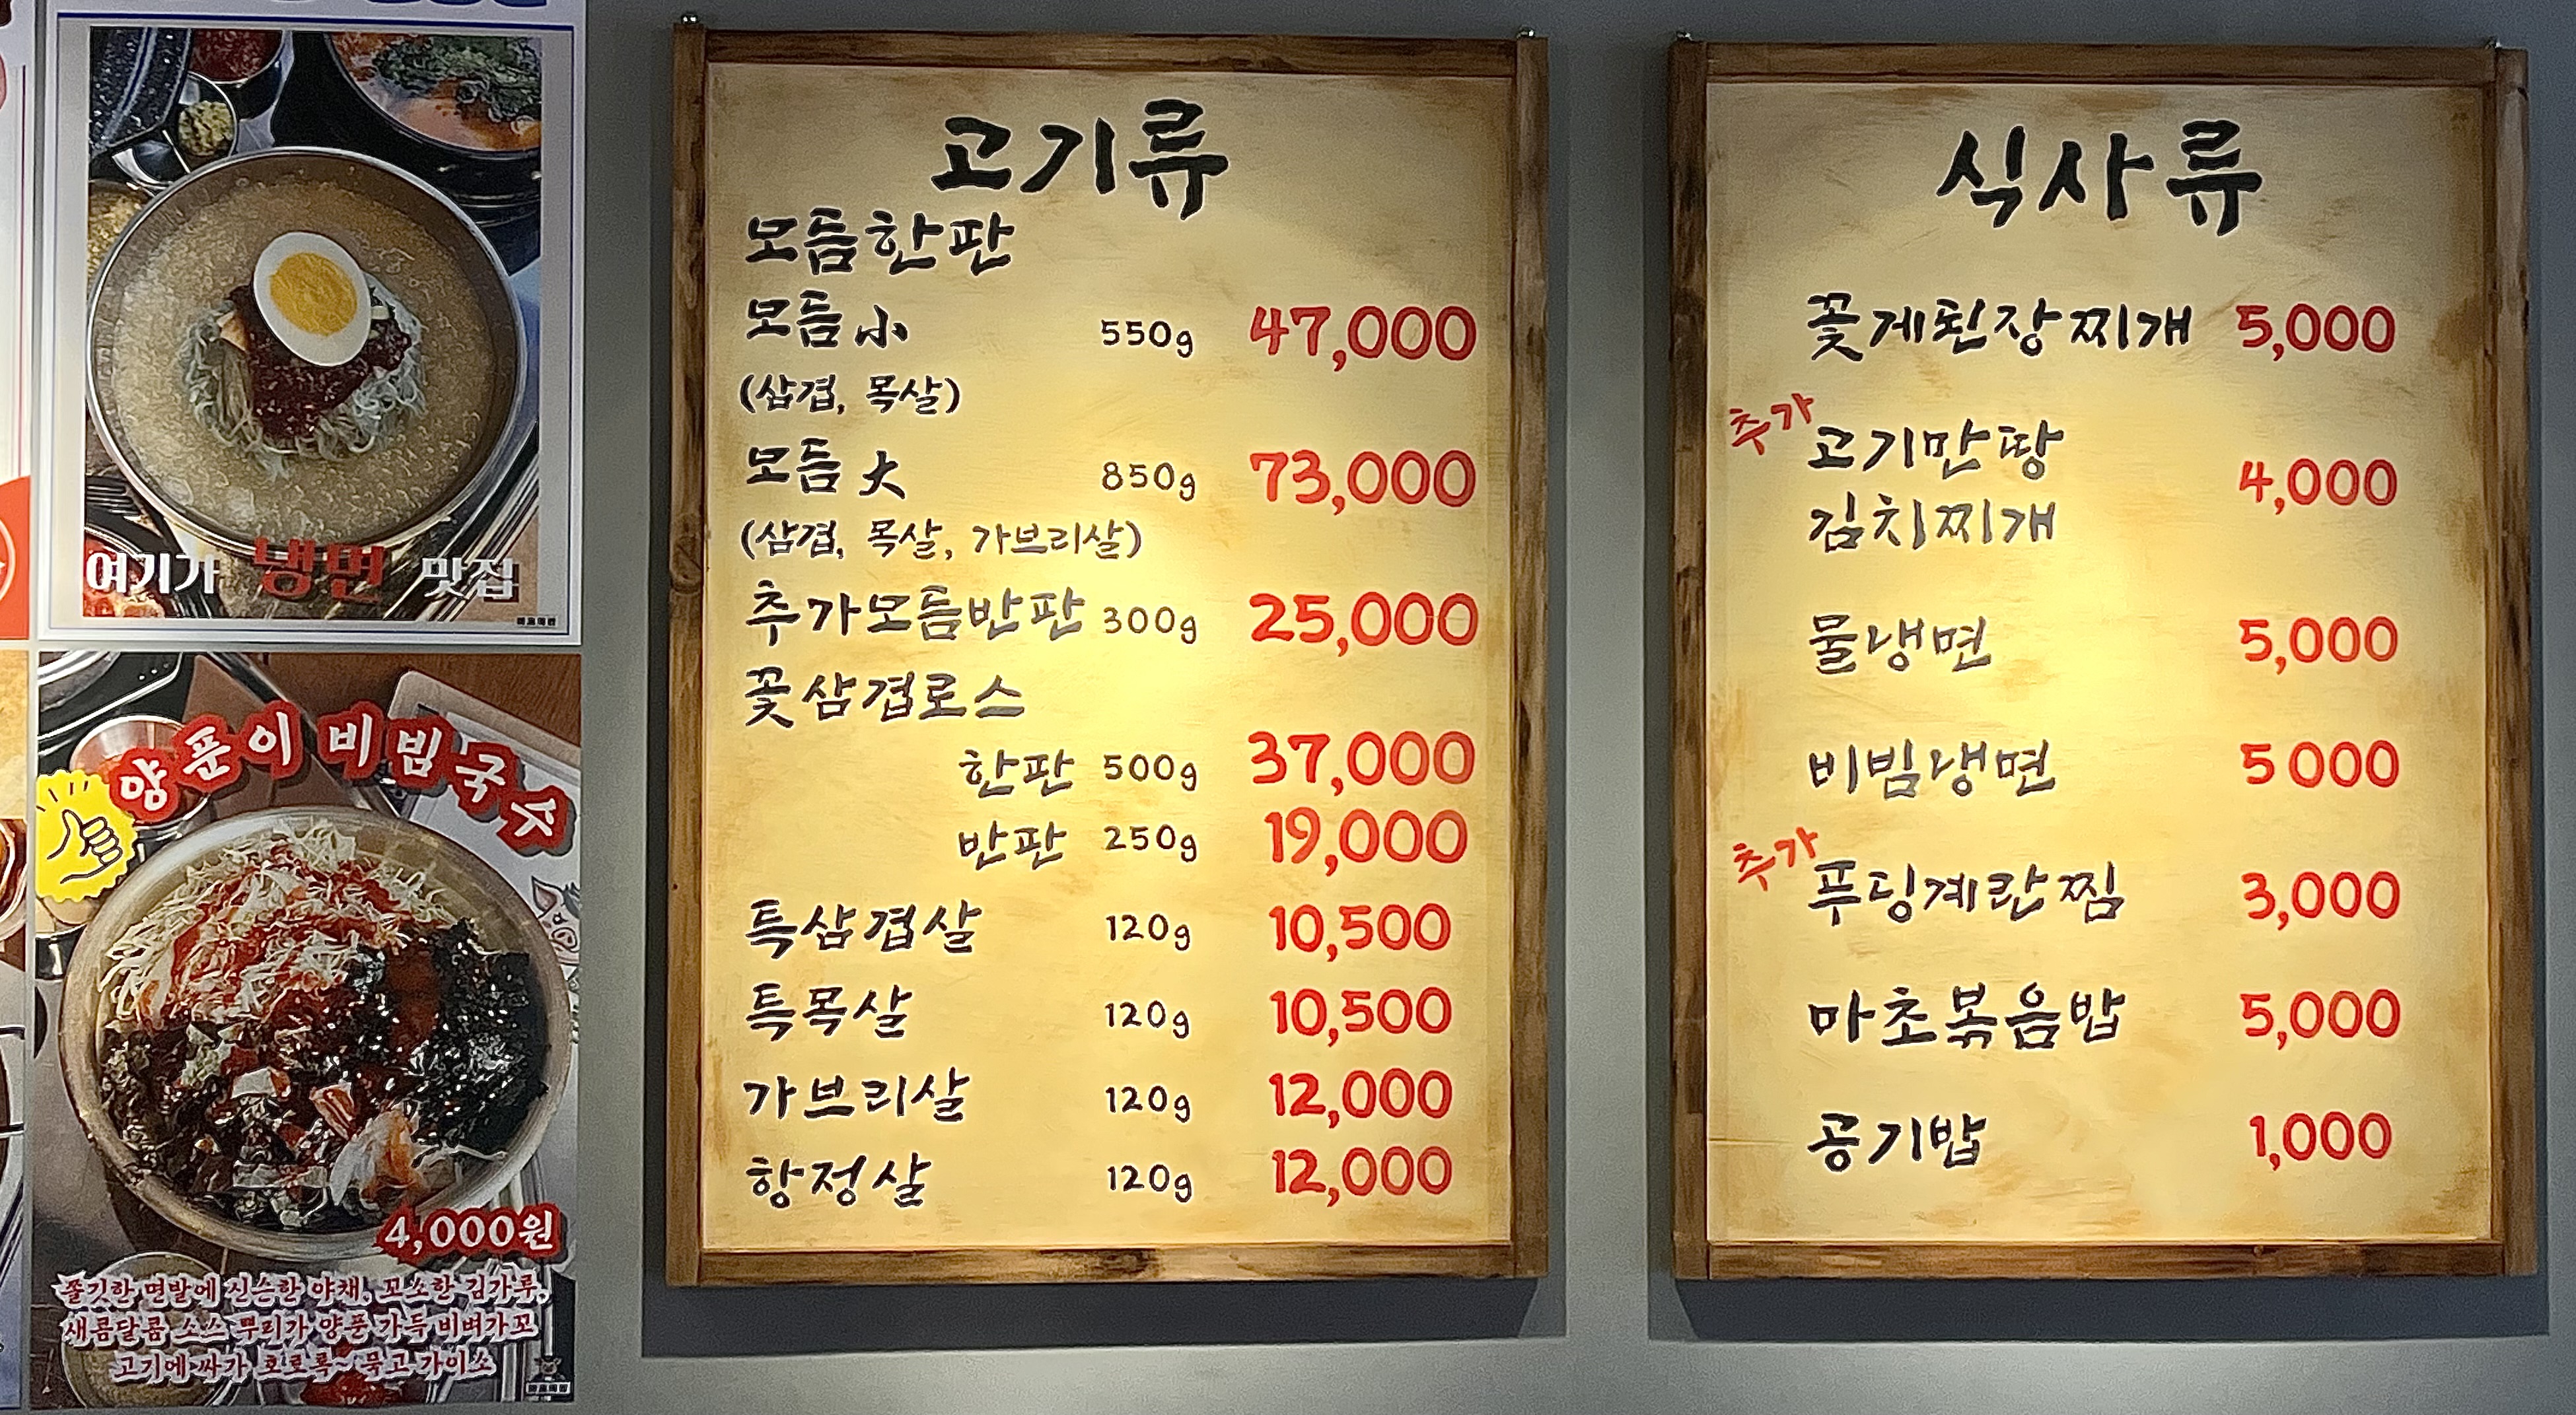 여기가 냉면 맛집
양푼이 비빔국수
4,000원
쫄깃한 면발에 신슨한 야채, 꼬소한 김가루,
새콤달콤 소스 뿌리가 양푼 가득 비벼가꼬
고기에 싸가 호로록~ 묵고 가이소
고기류
모듬한판
모듬 小 550g 47,000
(삼겹, 목살)
모듬 大 850g 73,000
(삼겹, 목살, 가브리살)
추가모듬반판 300g 25,000
꽃삼겹로스
한판 500g 37,000
반판 250g 19,000
특삼겹살 120g 10,500
특목살 120g 10,500
가브리살 120g 12,000
항정살 120g 12,000
식사류
꽃게된장찌개 5,000
추가
고기만땅
김치찌개 4,000
물냉면 5,000
비빔냉면 5 000
추가
푸딩계란찜 3,000
마초볶음밥 5,000
공기밥 1,000